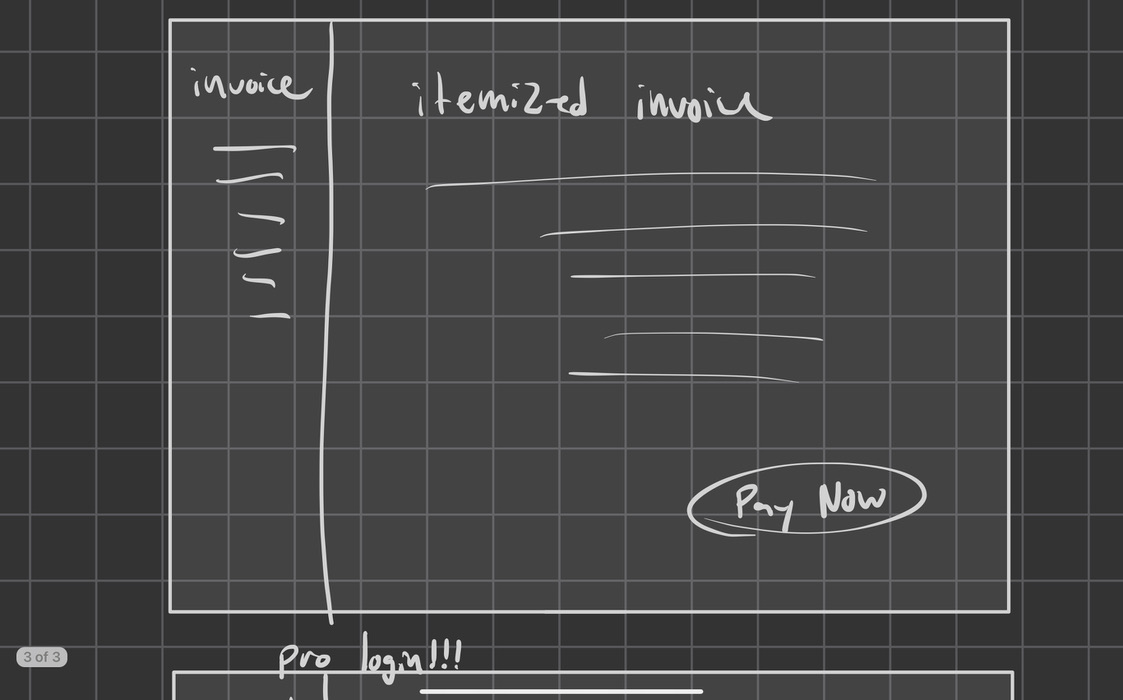 invoice
itemized invoice
Pay Now
pro login!!!
3 of 3